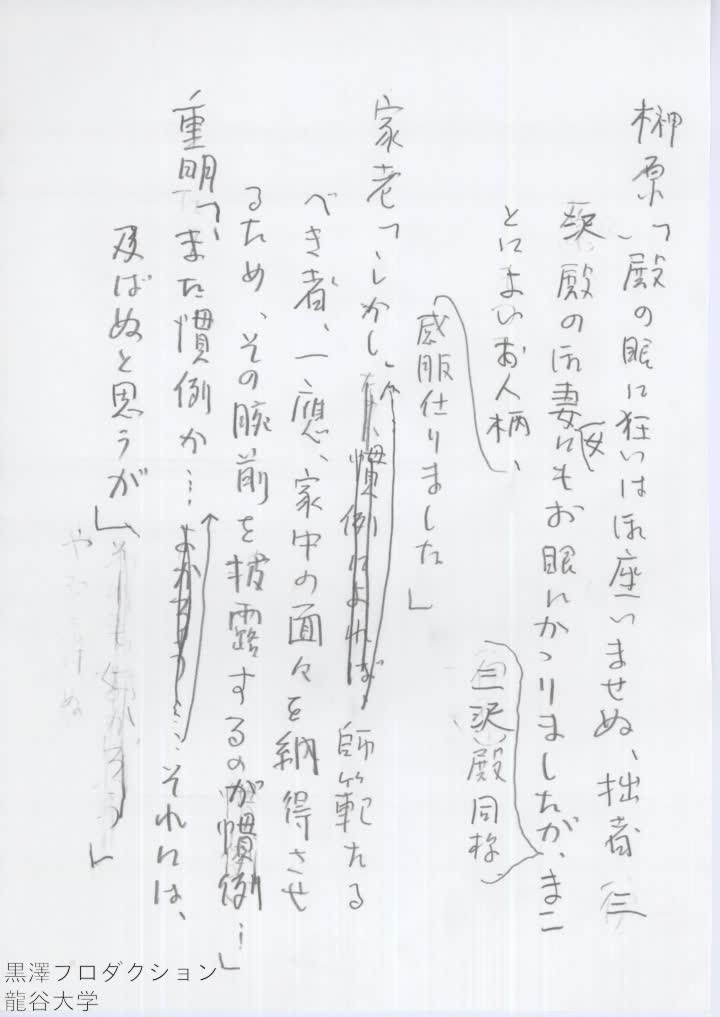 榊原「殿の眼に狂いは御座いませぬ、拙者 三
沢殿の御妻女にもお眼にかゝりましたが、まこ
三沢殿同様
とによいお人柄、
感服仕りました」
家老「しかし、慣例によれば、師範たる
べき者、一應、家中の面々を納得させ
るため、その腕前を披露するのが慣例…」
重明「また慣例か…よかろう……それには、
及ばぬと思うが」
黒澤プロダクション
龍谷大学